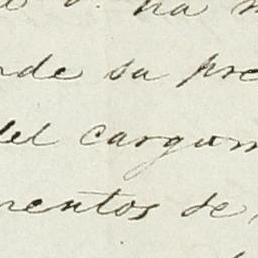 ha
nde su pre
del cargam
mentos de